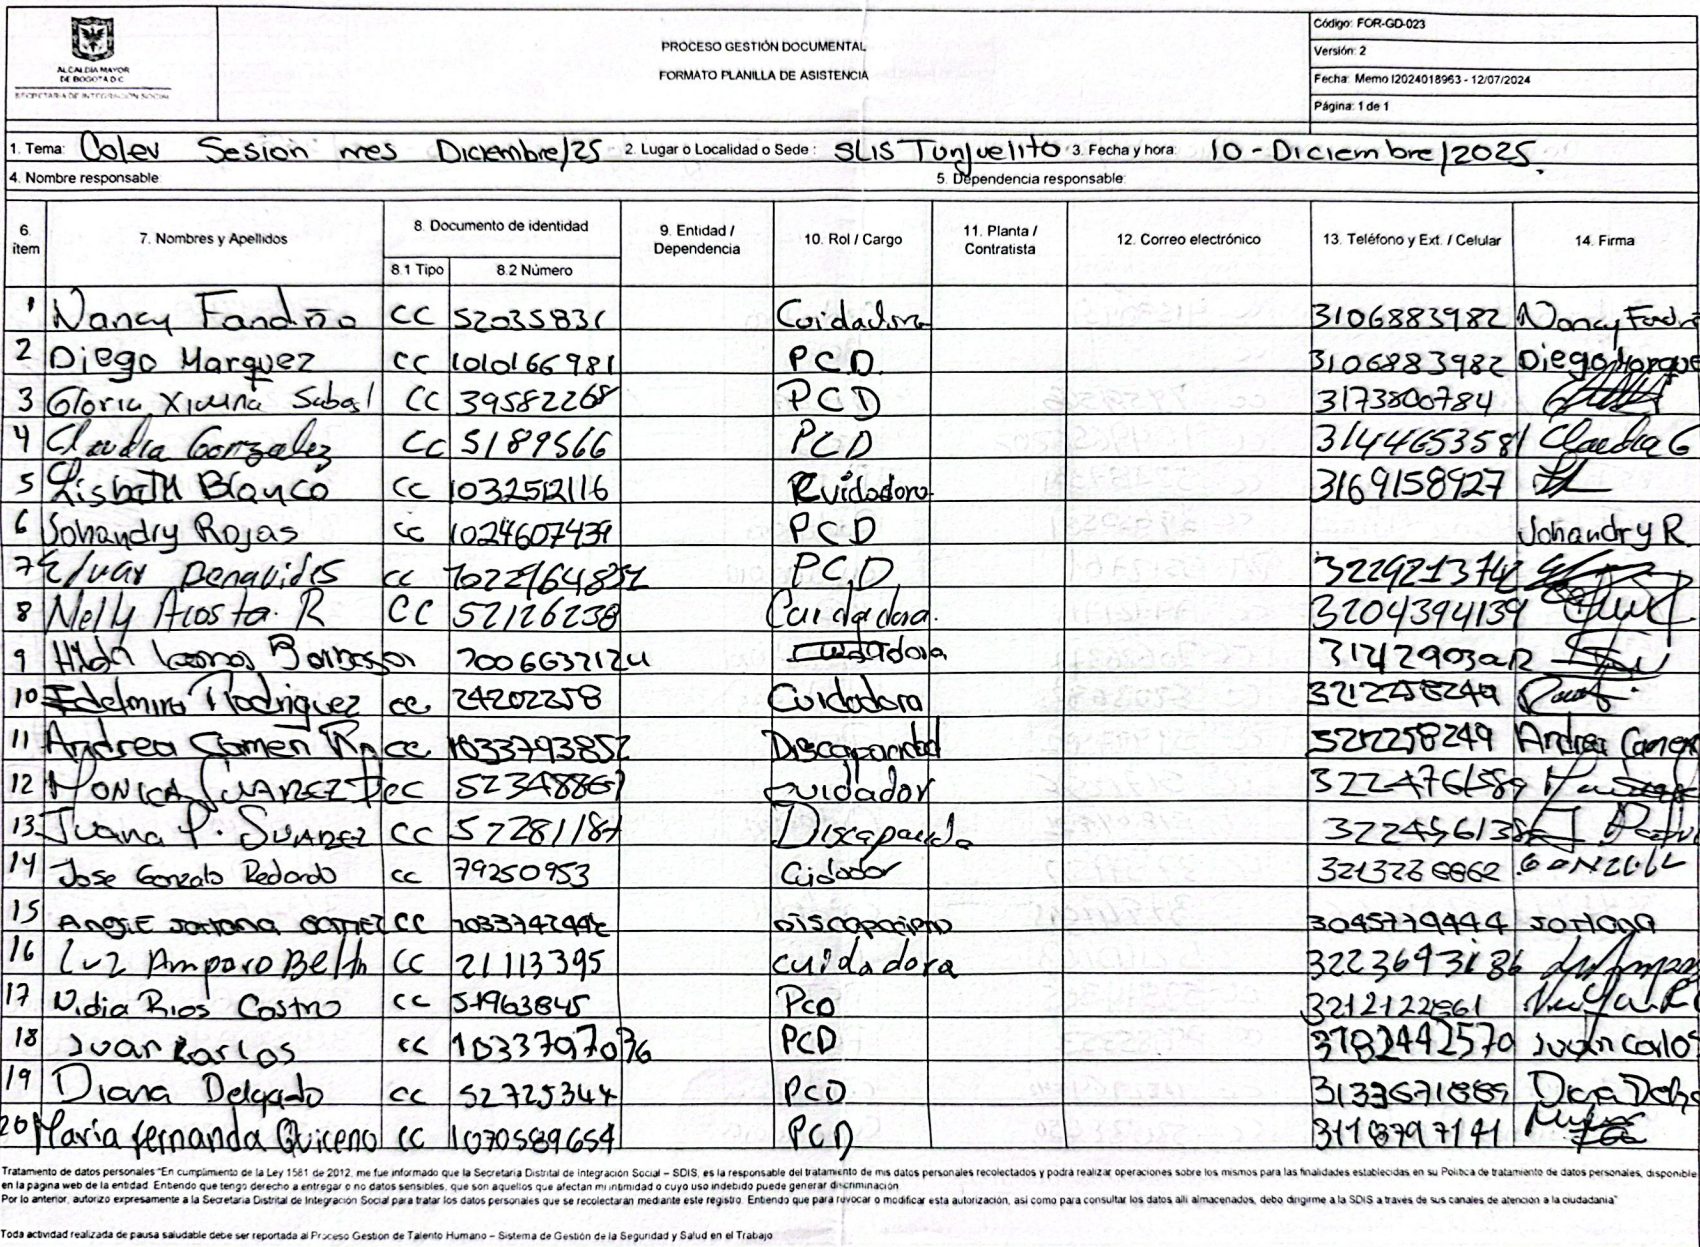 ALCALDIA MAYOR
DE BOGOTA D.C.
SECRETARIA DE INTEGRACIÓN SOCIAL
PROCESO GESTIÓN DOCUMENTAL
FORMATO PLANILLA DE ASISTENCIA
Código: FOR-GD-023
Versión: 2
Fecha: Memo I2024018963 - 12/07/2024
Página: 1 de 1
1. Tema: Colev Sesion mes Diciembre/25 2. Lugar o Localidad o Sede : SLIS Tunjuelito 3. Fecha y hora: 10 - Diciembre/2025.
4. Nombre responsable: 5. Dependencia responsable:
6. ítem 7. Nombres y Apellidos 8. Documento de identidad 8.1 Tipo 8.2 Número 9. Entidad / Dependencia 10. Rol / Cargo 11. Planta / Contratista 12. Correo electrónico 13. Teléfono y Ext. / Celular 14. Firma
1 Nancy Fandiño CC 52035831 Cuidadora 3106883982 Nancy
2 Diego Marquez CC 1010166981 PCD. 3106883982 Diego Marque
3 Gloria Ximena CC 39582268 PCD 3173800784
4 Claudia Gonzalez CC 5189566 PCD 3144653581 Claudia G
5 Lisbeth Blanco CC 1032512116 Cuidadora 3169158927
6 Johandry Rojas CC 1024607439 PCD Johandry R.
7 CC PCD
8 Nelly Acosta. R CC 52126238 Cuidadora. 3204394139
9 Hilda Cuidadora
10 Edelmira Rodriguez cc 24202258 Cuidadora 3212258249
11 Andrea cc 1033793852 Discapacidad 3212258249 Andrea
12 MONICA SUAREZ CC Cuidador
13 Juana P. SUAREZ CC Discapacida
14 Jose Gonzalo Redondo cc 79250953 Cuidador
15 ANGIE CC 3045779444
16 Luz Amparo CC 21113395 cuidadora 3223693186
17 Nidia Rios Castro CC 51963845 PCD
18 Juan Carlos cc PCD Juan Carlos
19 Diana Delgado cc 52725344 PCD Diana
20 Maria fernanda Quiceno CC 1070589654 PCD 3118797141
Tratamiento de datos personales “En cumplimiento de la Ley 1581 de 2012, me fue informado que la Secretaria Distrital de Integración Social – SDIS, es la responsable del tratamiento de mis datos personales recolectados y podrá realizar operaciones sobre los mismos para las finalidades establecidas en su Política de tratamiento de datos personales, disponible
en la página web de la entidad. Entiendo que tengo derecho a entregar o no datos sensibles, que son aquellos que afectan mi intimidad o cuyo uso indebido puede generar discriminación
Por lo anterior, autorizo expresamente a la Secretaria Distrital de Integración Social para tratar los datos personales que se recolectaran mediante este registro. Entiendo que para revocar o modificar esta autorización, así como para consultar los datos allí almacenados, debo dirigirme a la SDIS a través de sus canales de atención a la ciudadanía”
Toda actividad realizada de pausa saludable debe ser reportada al Proceso Gestión de Talento Humano – Sistema de Gestión de la Seguridad y Salud en el Trabajo